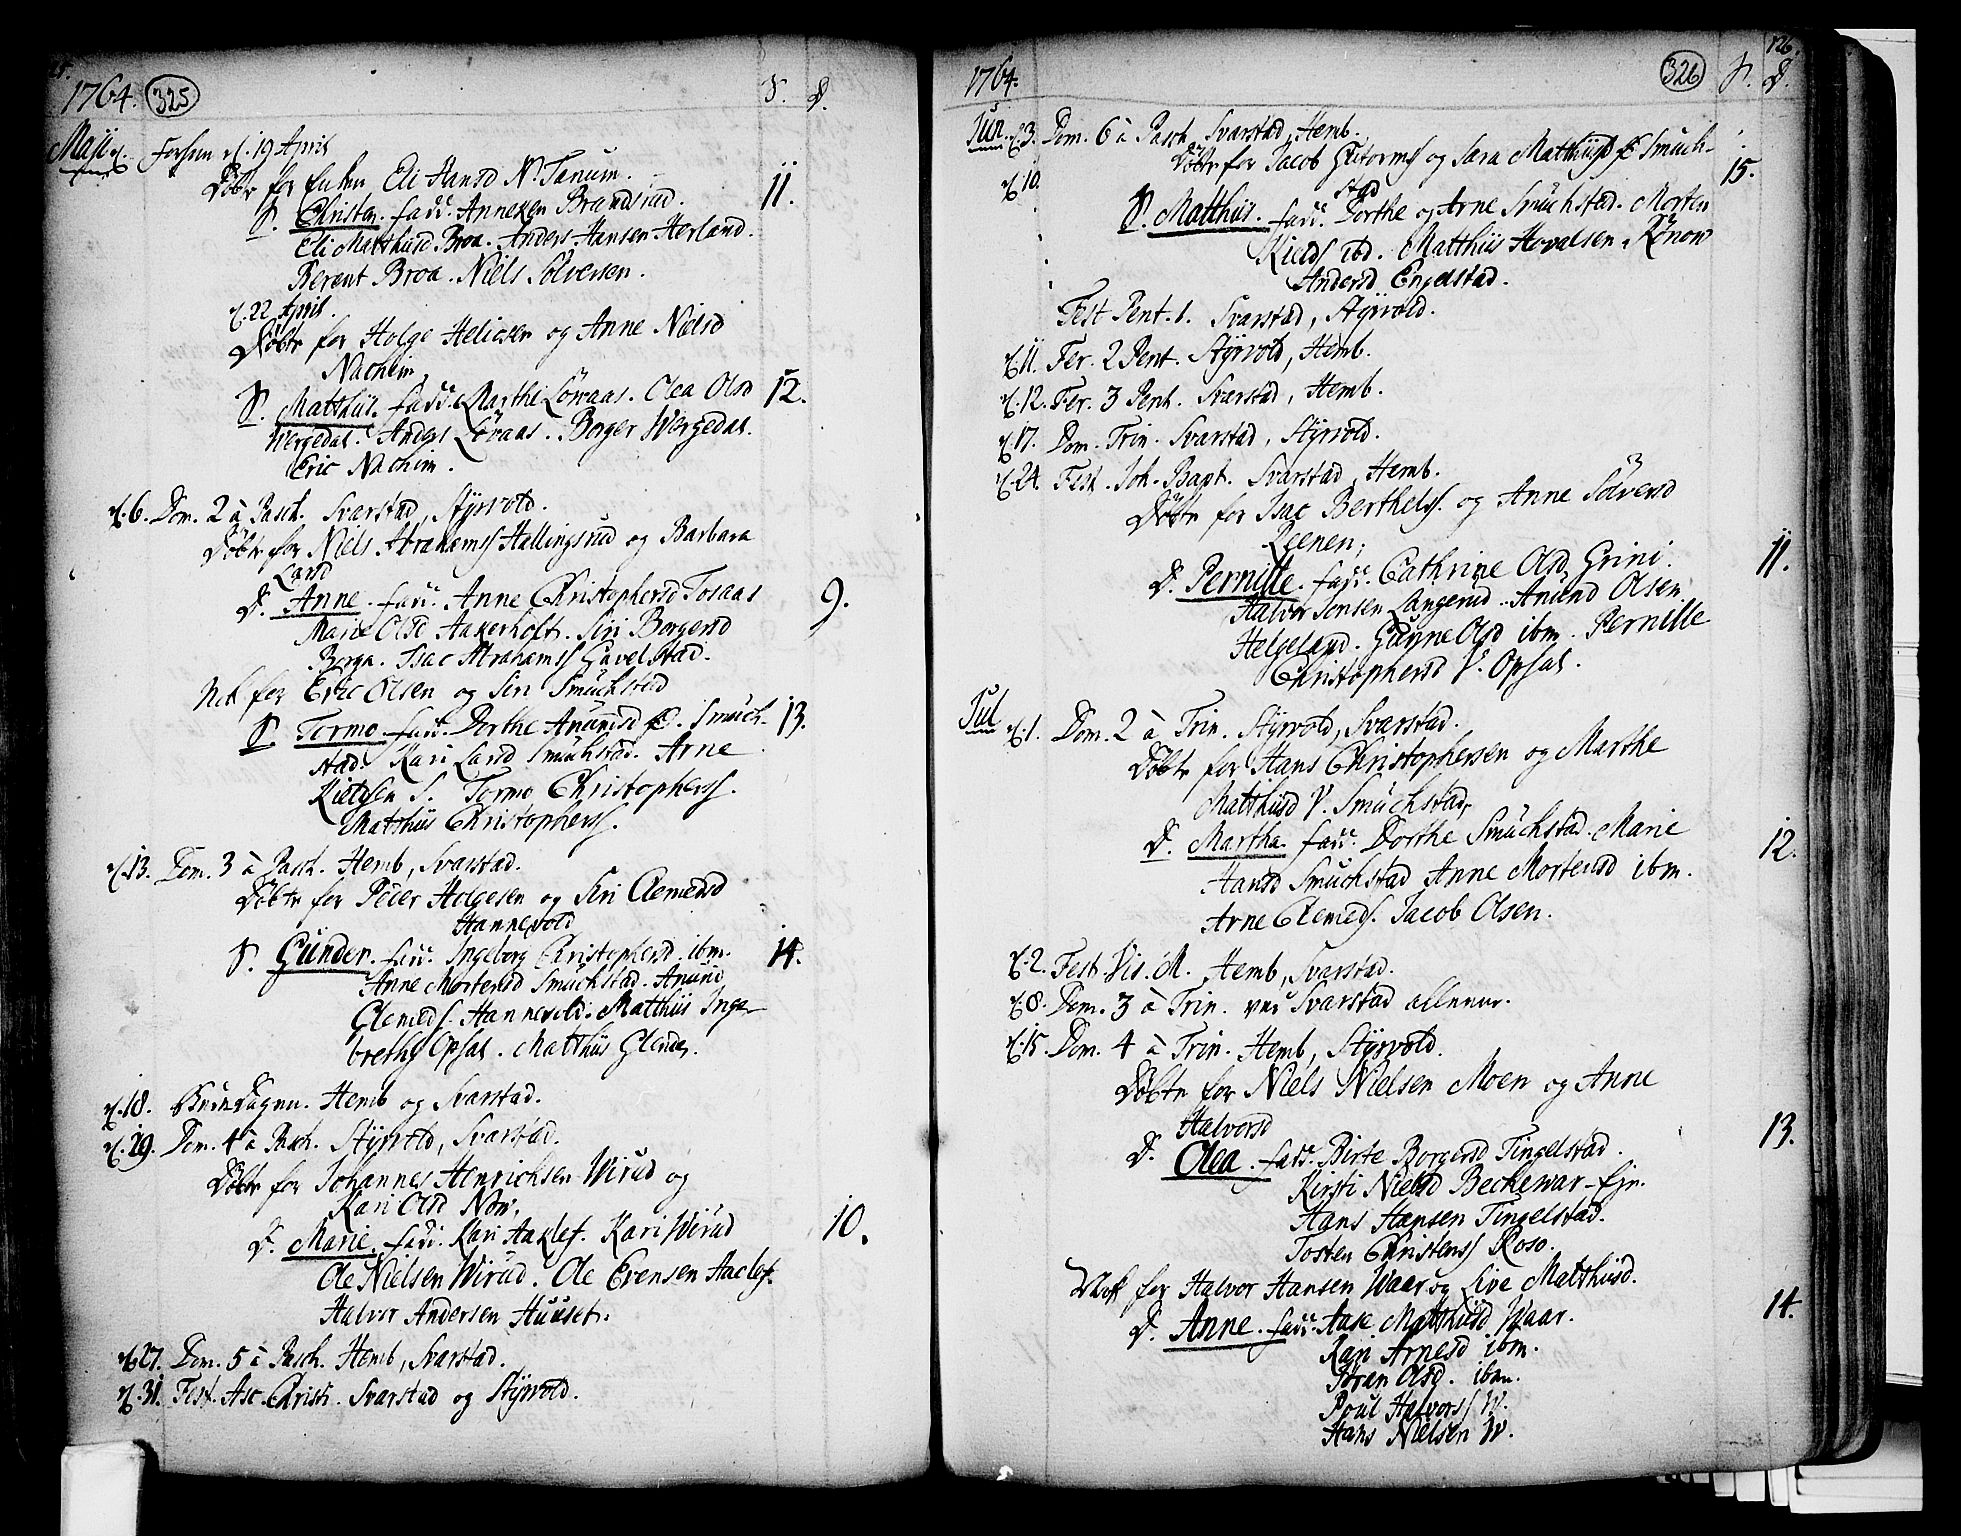 1764. 325 S. D.
Maji forsøm d. 19 April
Döbte for Enken Eli Hansd N. Tanum.
S. Christen. fadd. Anneken Brandstad. 11.
Eli Matthiisd Broa. Anders Hansen Herland.
Berent Broa. Niels Sölversen.
d. 22 April.
Döbte for Holge Helicsen og Anne Nielsd
Nachim
S. Matthiis. fadd. Marthe Löwaas. Olea Olsd 12.
Wergedal. Anders Löwaas. Borger Wergedal.
Eric Nachim.
d. 6. Dom. 2 à Pasch. Svarstad, Styrvold.
Döbte for Niels Abrahamss Hallingsrud og Barbara
Larsd
D. Anne. fadd. Anne Christophersd Fosaas 9.
Marie Olsd Aakerholt. Siri Borgersd
Berga. Isac Abrahamss Gavelstad.
Nok for Eric Olsen og Siri Smuchstad
S. Tormo. fadd. Dorthe Anundsd Smuch- 13.
stad. Kari Larsd Smuchstad. Arne
Kieldsen S. Tormo Christopherss.
Matthiis Christopherss.
d. 13. Dom. 3 à Pasch. Hemb, Svarstad.
Döbte for Peder Holgesen og Siri Clemedsd
Hannevold
S. Gunder. fadd. Ingeborg Christophersd ibm. 14.
Anne Mortensd Smuchstad. Anund
Clemeds. Hannevold. Matthiis Inge-
breths Opsal. Matthiis Clemeds.
d. 18. Bededagen. Hemb og Svarstad.
d. 19. Dom. 4 à Pasch. Styrvold, Svarstad.
Döbte for Johannes Henrichsen Wirud og
Kari Olsd Now,
D. Marie. fadd. Kari Aaklef. Kari Wirud 10.
Ole Nielsen Wirud. Ole Evensen Aaclef.
Halvor Andersen Huuset.
d. 27. Dom. 5 à Pasch. Hemb, Svarstad.
d. 31. Fest. Asc. Christi. Svarstad og Styrvold.
1764. 326 S. D. 126.
Jun. d. 3. Dom. 6 à Pasch. Svarstad, Hemb.
d. 10. Döbte for Jacob Guttormss og Sara Matthiisd Smuch-
stad
S. Matthiis. fadd. Dorthe og Arne Smuchstad. Morten 15.
Kields ibd. Matthiis Hovalsen. Rönow
Andersd Engelstad.
Fest Pent. 1. Svarstad, Styrvold.
d. 11. Fer. 2 Pent. Styrvold, Hemb.
d. 12. Fer. 3 Pent. Svarstad, Hemb.
d. 17. Dom. Trin. Svarstad, Styrvold.
d. 24. Fest. Joh. Bapt. Svarstad, Hemb.
Döbte for Isac Berthelss. og Anne Sölversd
Leenen;
D. Pernille. fadd. Cathrine Olsd Grini. 11.
Halvor Jonsen Langerud. Anund Olsen
Helgeland. Gunne Olsd ibm. Pernille
Christophersd V. Opsal.
Jul d. 1. Dom. 2 à Trin. Styrvold, Svarstad.
Döbte for Hans Christophersen og Marthe
Matthiisd V. Smuchstad,
D. Martha. fadd. Dorthe Smuchstad. Marie 12.
Hansd Smuchstad Anne Mortensd ibm.
Arne Clemeds. Jacob Olsen.
d. 2. Fest Vis. M. Hemb, Svarstad.
d. 8. Dom. 3 à Trin. ved Svarstad allene.
d. 15. Dom. 4 à Trin. Hemb, Styrvold.
Döbte for Niels Nielsen Moen og Anne
Halvorsd
D. Olea. fadd. Birte Borgersd Tingelstad. 13.
Kirsti Nielsd Beckewar-Eje.
Hans Hansen Tingelstad.
Tosten Christenss Roso.
Nok for Halvor Hansen Waar og Live Matthiisd.
D. Anne. fadd. Aase Matthiisd Waar. 14.
Kari Arnesd ibm.
Jöran Olsd. ibm.
Poul Halvorss W.
Hans Nielsen W.